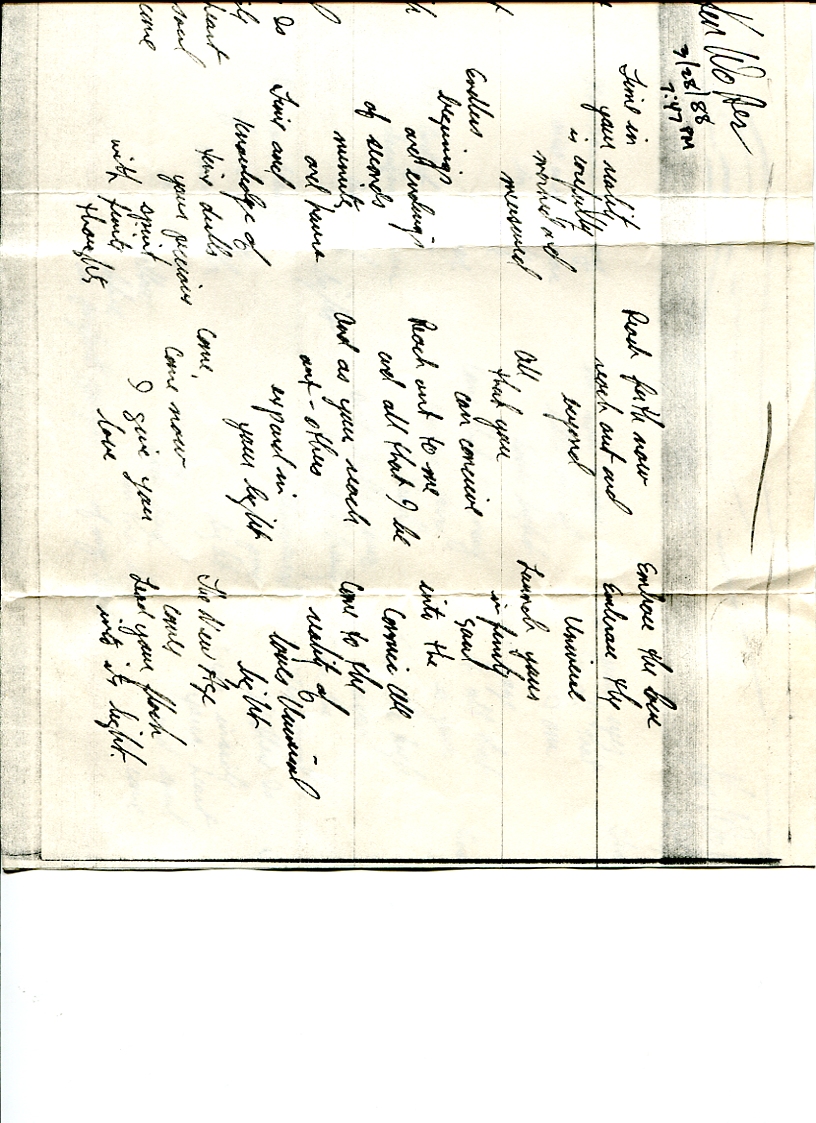 3/28/88
7:47 PM
soul
come
Time in
your realit
is carefully
marked and
measured
Endless
beginings
and endings -
of seconds
minutes
and hours
Time and
knowledge of
time dulls
your precious
spirit
with finite
thoughts
Reach forth now
reach out and
beyond
All
that you
can conceive
Reach out to me
and all that I be
And as you reach
out - others
expand in
your light
Come,
come now
I give you
love
Embrace the love
Embrace thy
Universe
Launch yours
infinity
soul
into the
Cosmic All
Come to thy
reality of
loves Universal
light
The New Age
comes
Lead your flock
into its light.